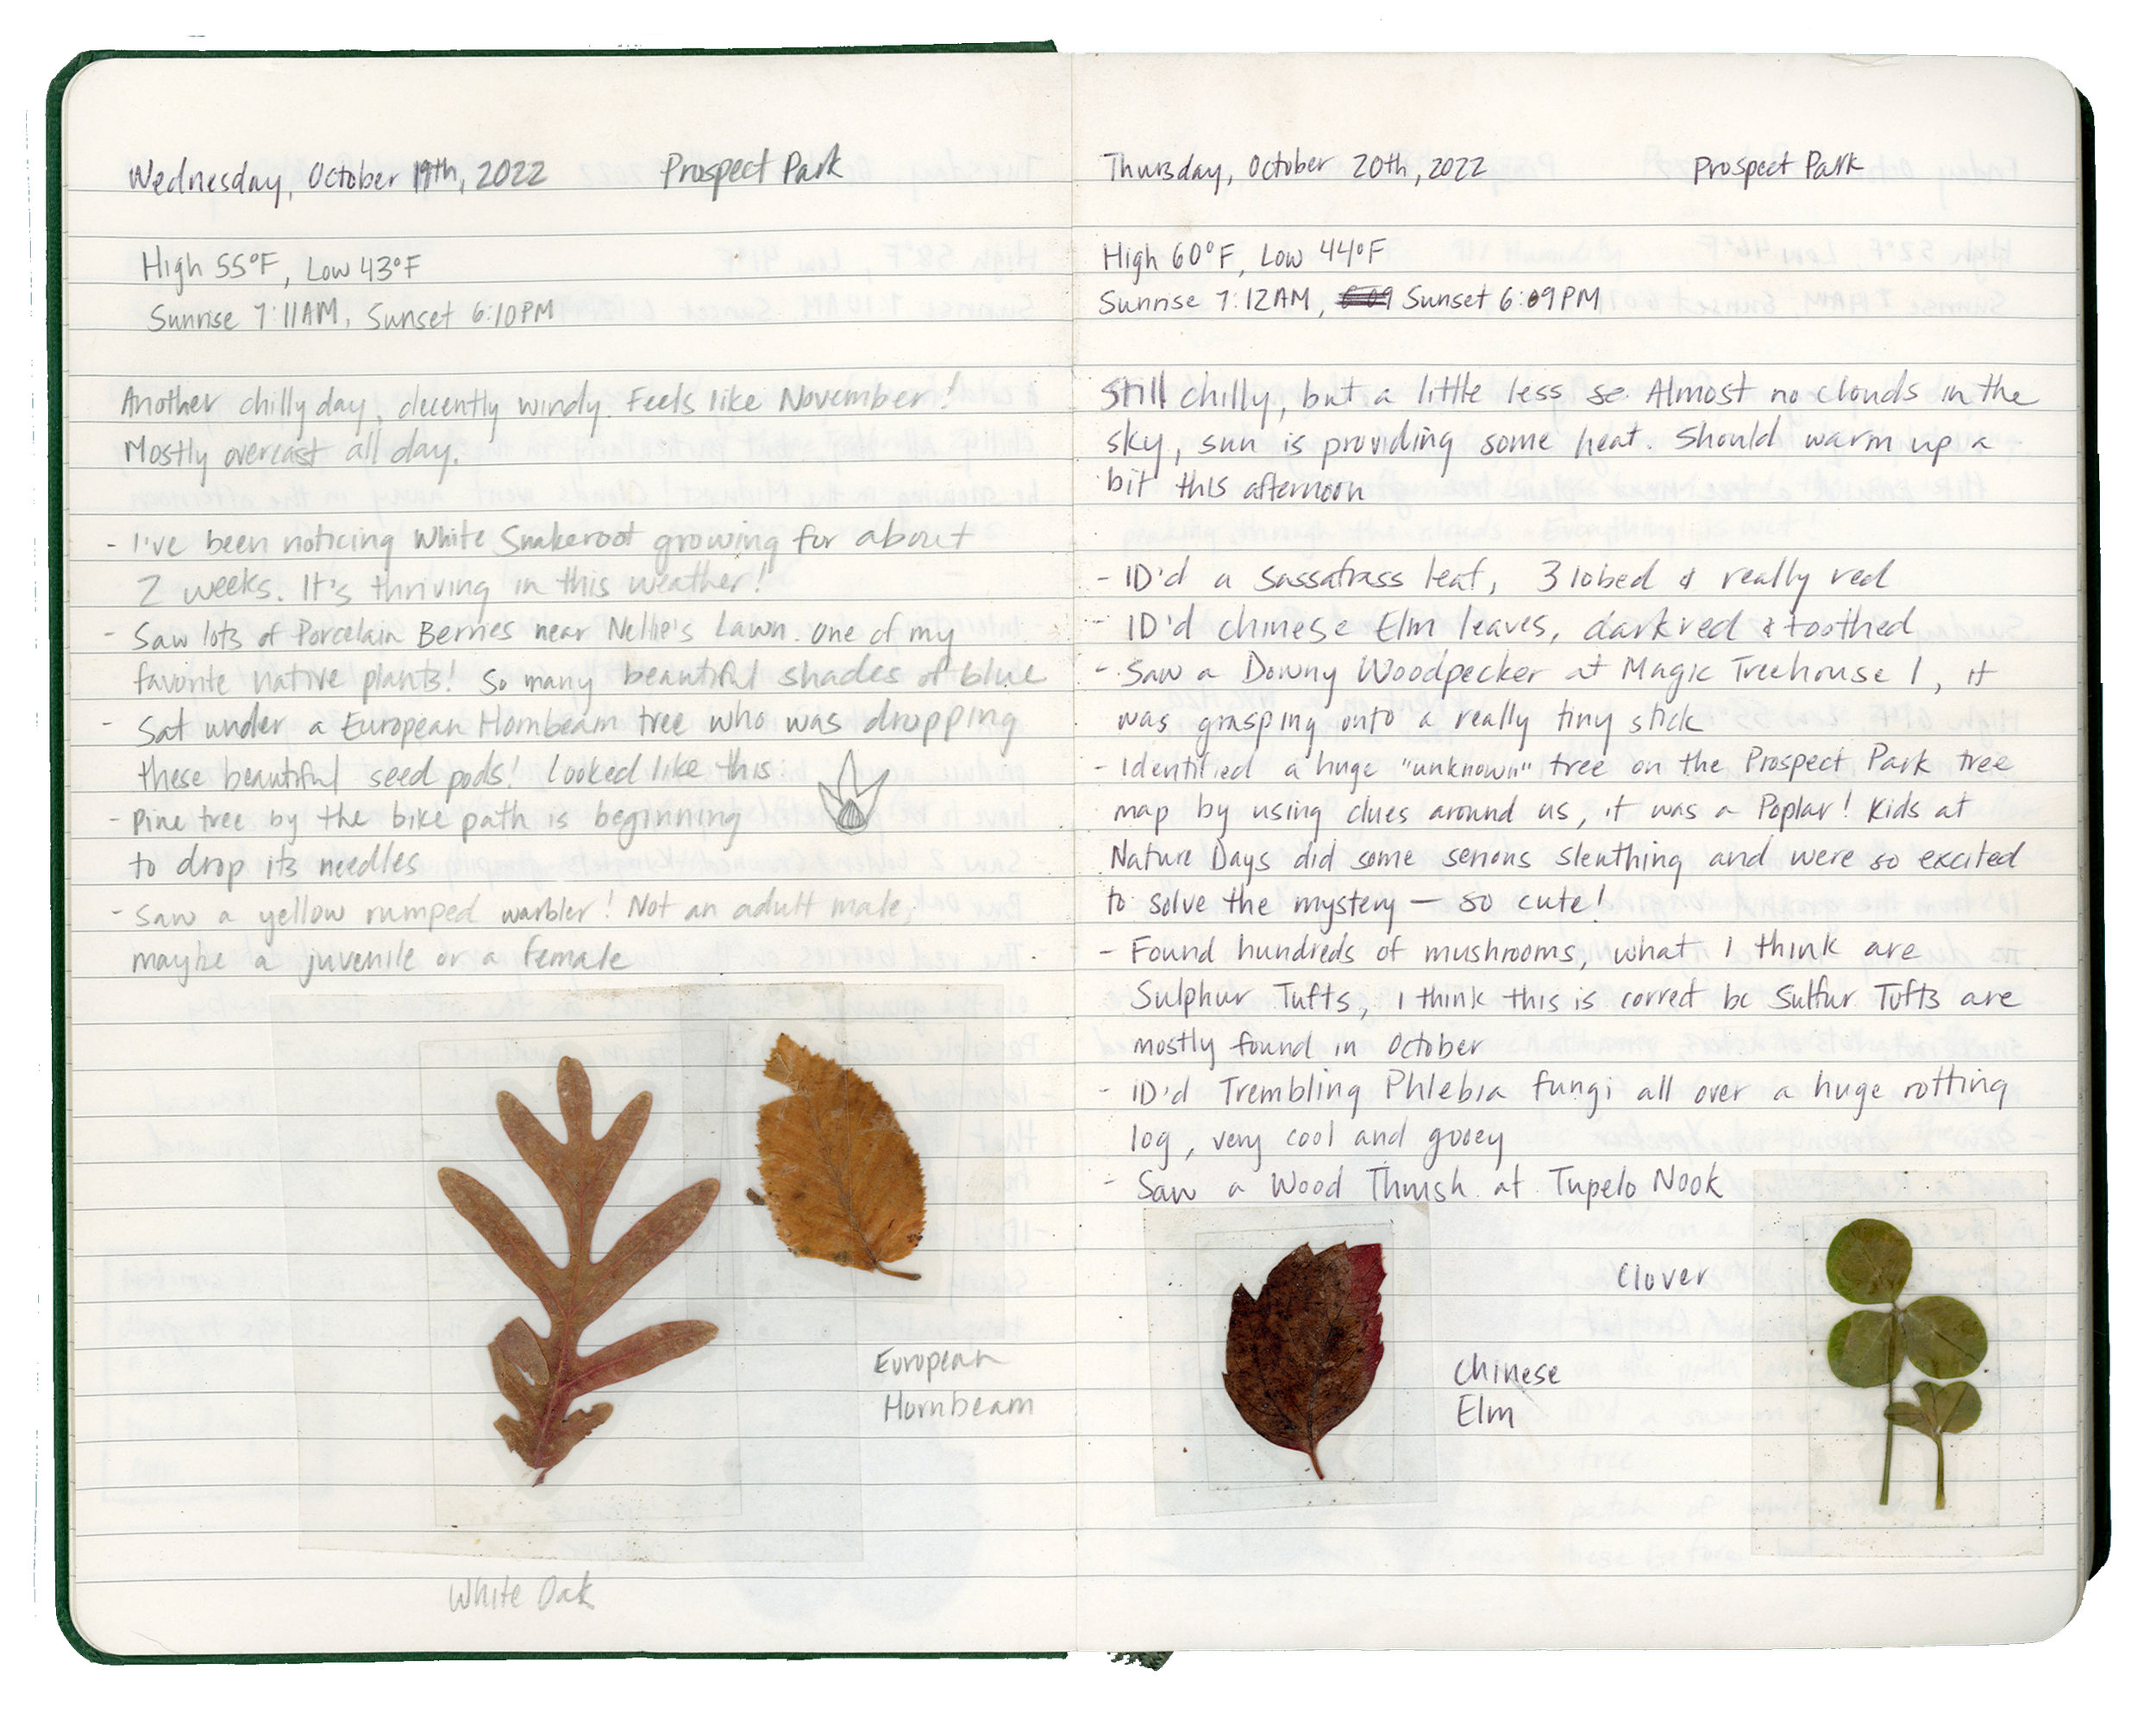 Wednesday, October 19th, 2022 Prospect Park
High 55°F, Low 43°F
Sunrise 7:11AM, Sunset 6:10PM
Another chilly day, decently windy. Feels like November!
Mostly overcast all day.
- I've been noticing White Snakeroot growing for about
2 weeks. It's thriving in this weather!
- Saw lots of Porcelain Berries near Nellie's Lawn. One of my
favorite native plants! So many beautiful shades of blue
- Sat under a European Hornbeam tree who was dropping
these beautiful seed pods! Looked like this
- Pine tree by the bike path is beginning
to drop its needles
- Saw a yellow rumped warbler! Not an adult male,
maybe a juvenile or a female
European
Hornbeam
White Oak
Thursday, October 20th, 2022 Prospect Park
High 60°F, Low 44°F
Sunrise 7:12AM, Sunset 6:09PM
Still chilly, but a little less so. Almost no clouds in the
sky, sun is providing some heat. Should warm up a
bit this afternoon
- ID'd a Sassafrass leaf, 3 lobed & really red
- ID'd chinese Elm leaves, dark red & toothed
- Saw a Downy Woodpecker at Magic Treehouse 1, it
was grasping onto a really tiny stick
- Identified a huge "unknown" tree on the Prospect Park tree
map by using clues around us, it was a Poplar! Kids at
Nature Days did some serious sleuthing and were so excited
to solve the mystery — so cute!
- Found hundreds of mushrooms, what I think are
Sulphur Tufts, I think this is correct bc Sulfur Tufts are
mostly found in October
- ID'd Trembling Phlebia fungi all over a huge rotting
log, very cool and gooey
- Saw a Wood Thrush at Tupelo Nook
Clover
Chinese
Elm